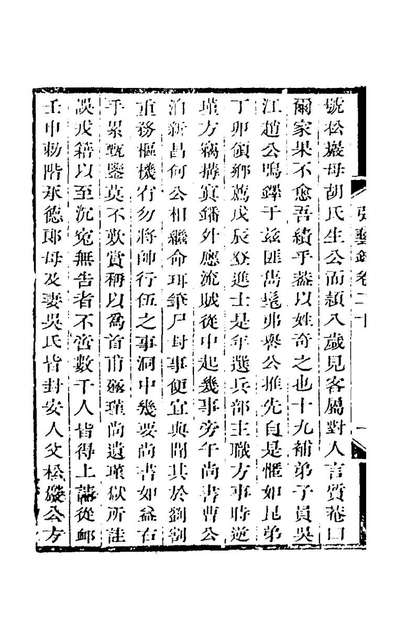 號松巖母胡氏生公而穎八歲見客屬對人言質菴曰
爾家果不愈吾績乎蓋以姓奇之也十九補弟子員吳
江趙公鳴鐸于茲匪雋髦弗舉公推先自是燃如昆弟
丁卯領鄉薦戊辰登進士是年選兵部主職方事時逆
瑾方竊搆寘鐇外應流賊從中起幾事旁午尚書曹公
泊新昌何公相繼命珥筆尸封事便宜典閱其於劉割
重務樞機有勿將帥行伍之事洞中幾要尚書如益右
手累甄鑒莫不歎賞稱以為首前茲瑾尚遺瑾獄所詿
誤戍籍以至沉寃無告者不啻數千人皆得上讞從邺
壬申勑階承德郎母及妻吳氏皆封安人父松巖公方
卷二十
一